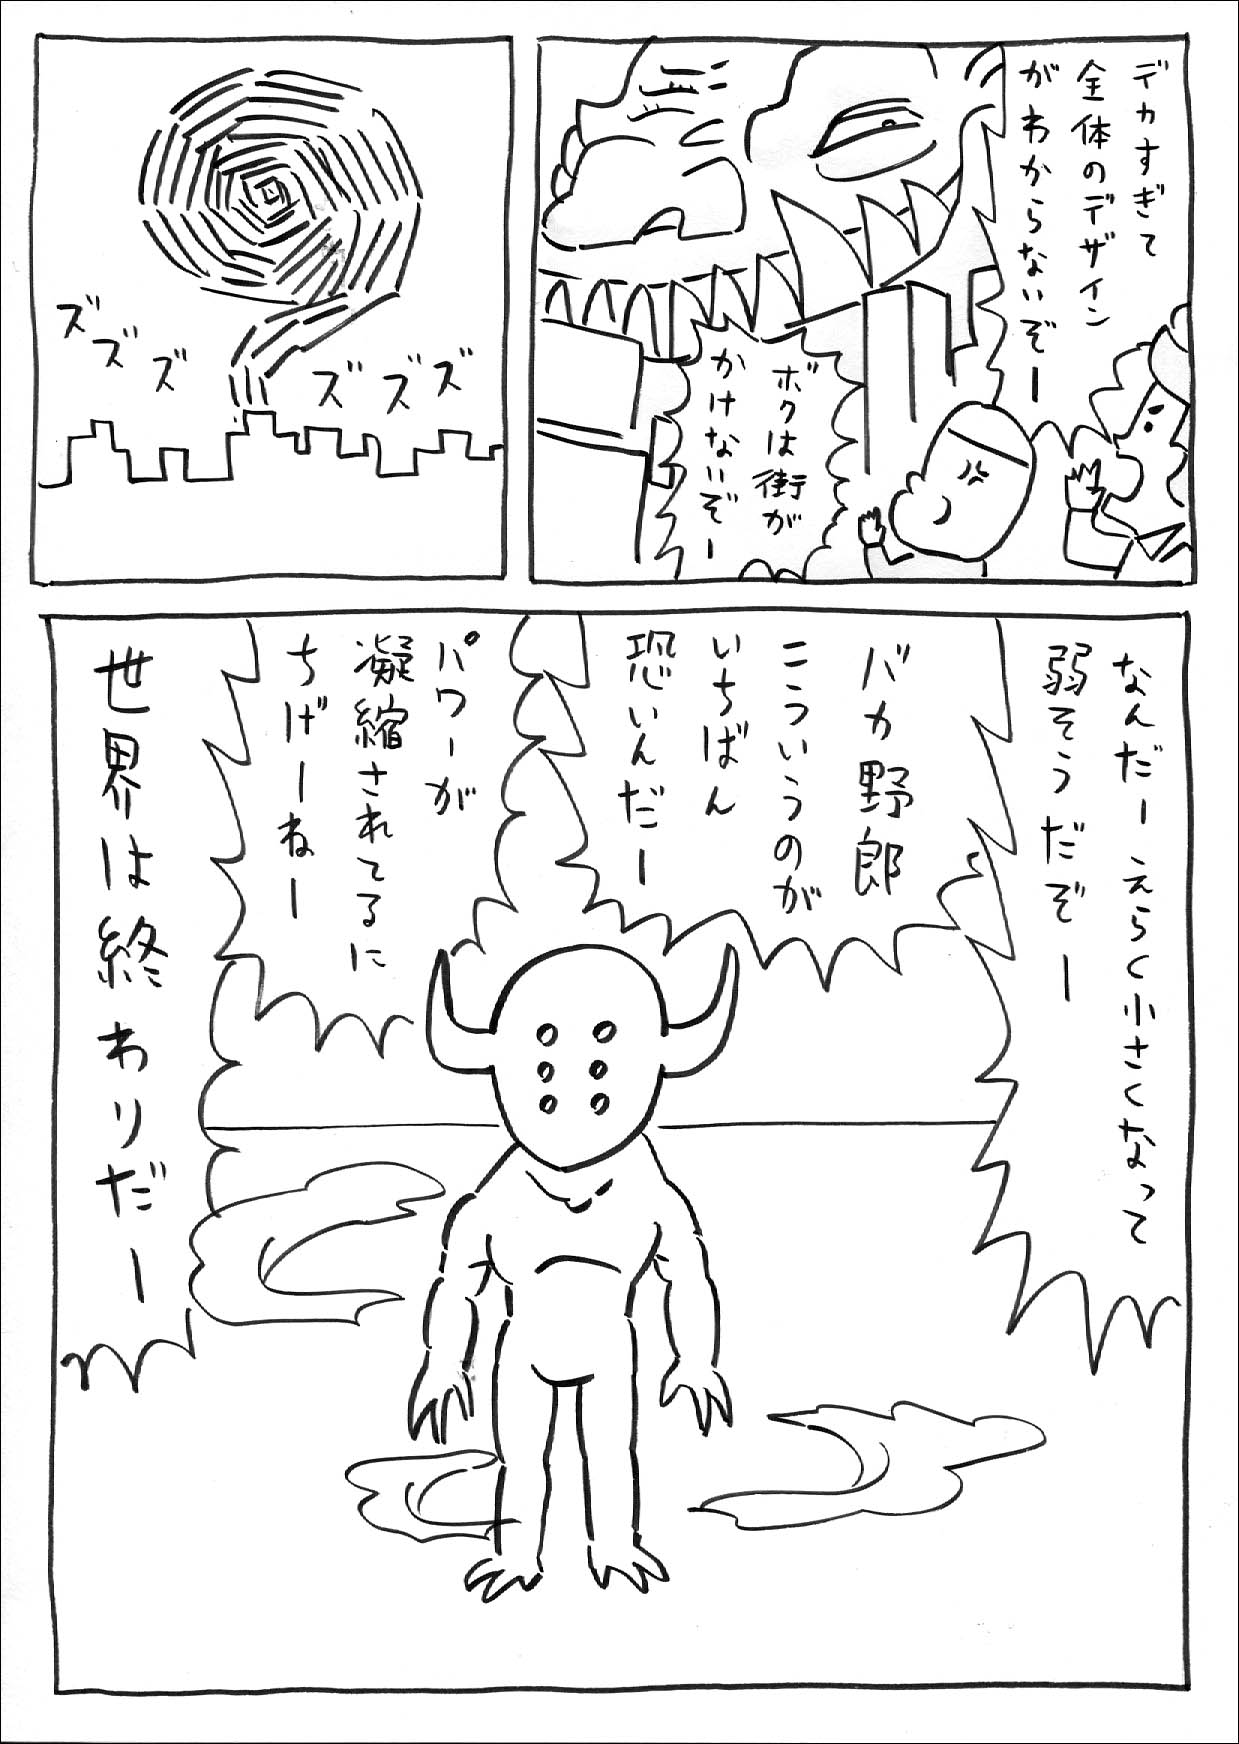 デカすぎて
全体のデザイン
がわからないぞー
ボクは街が
かけないぞー
ズズズ
ズズズ
なんだーえらく小さくなって
弱そうだぞー
バカ野郎
こういうのが
いちばん
恐いんだー
パワーが
凝縮されてるに
ちげーねー
世界は終わりだー